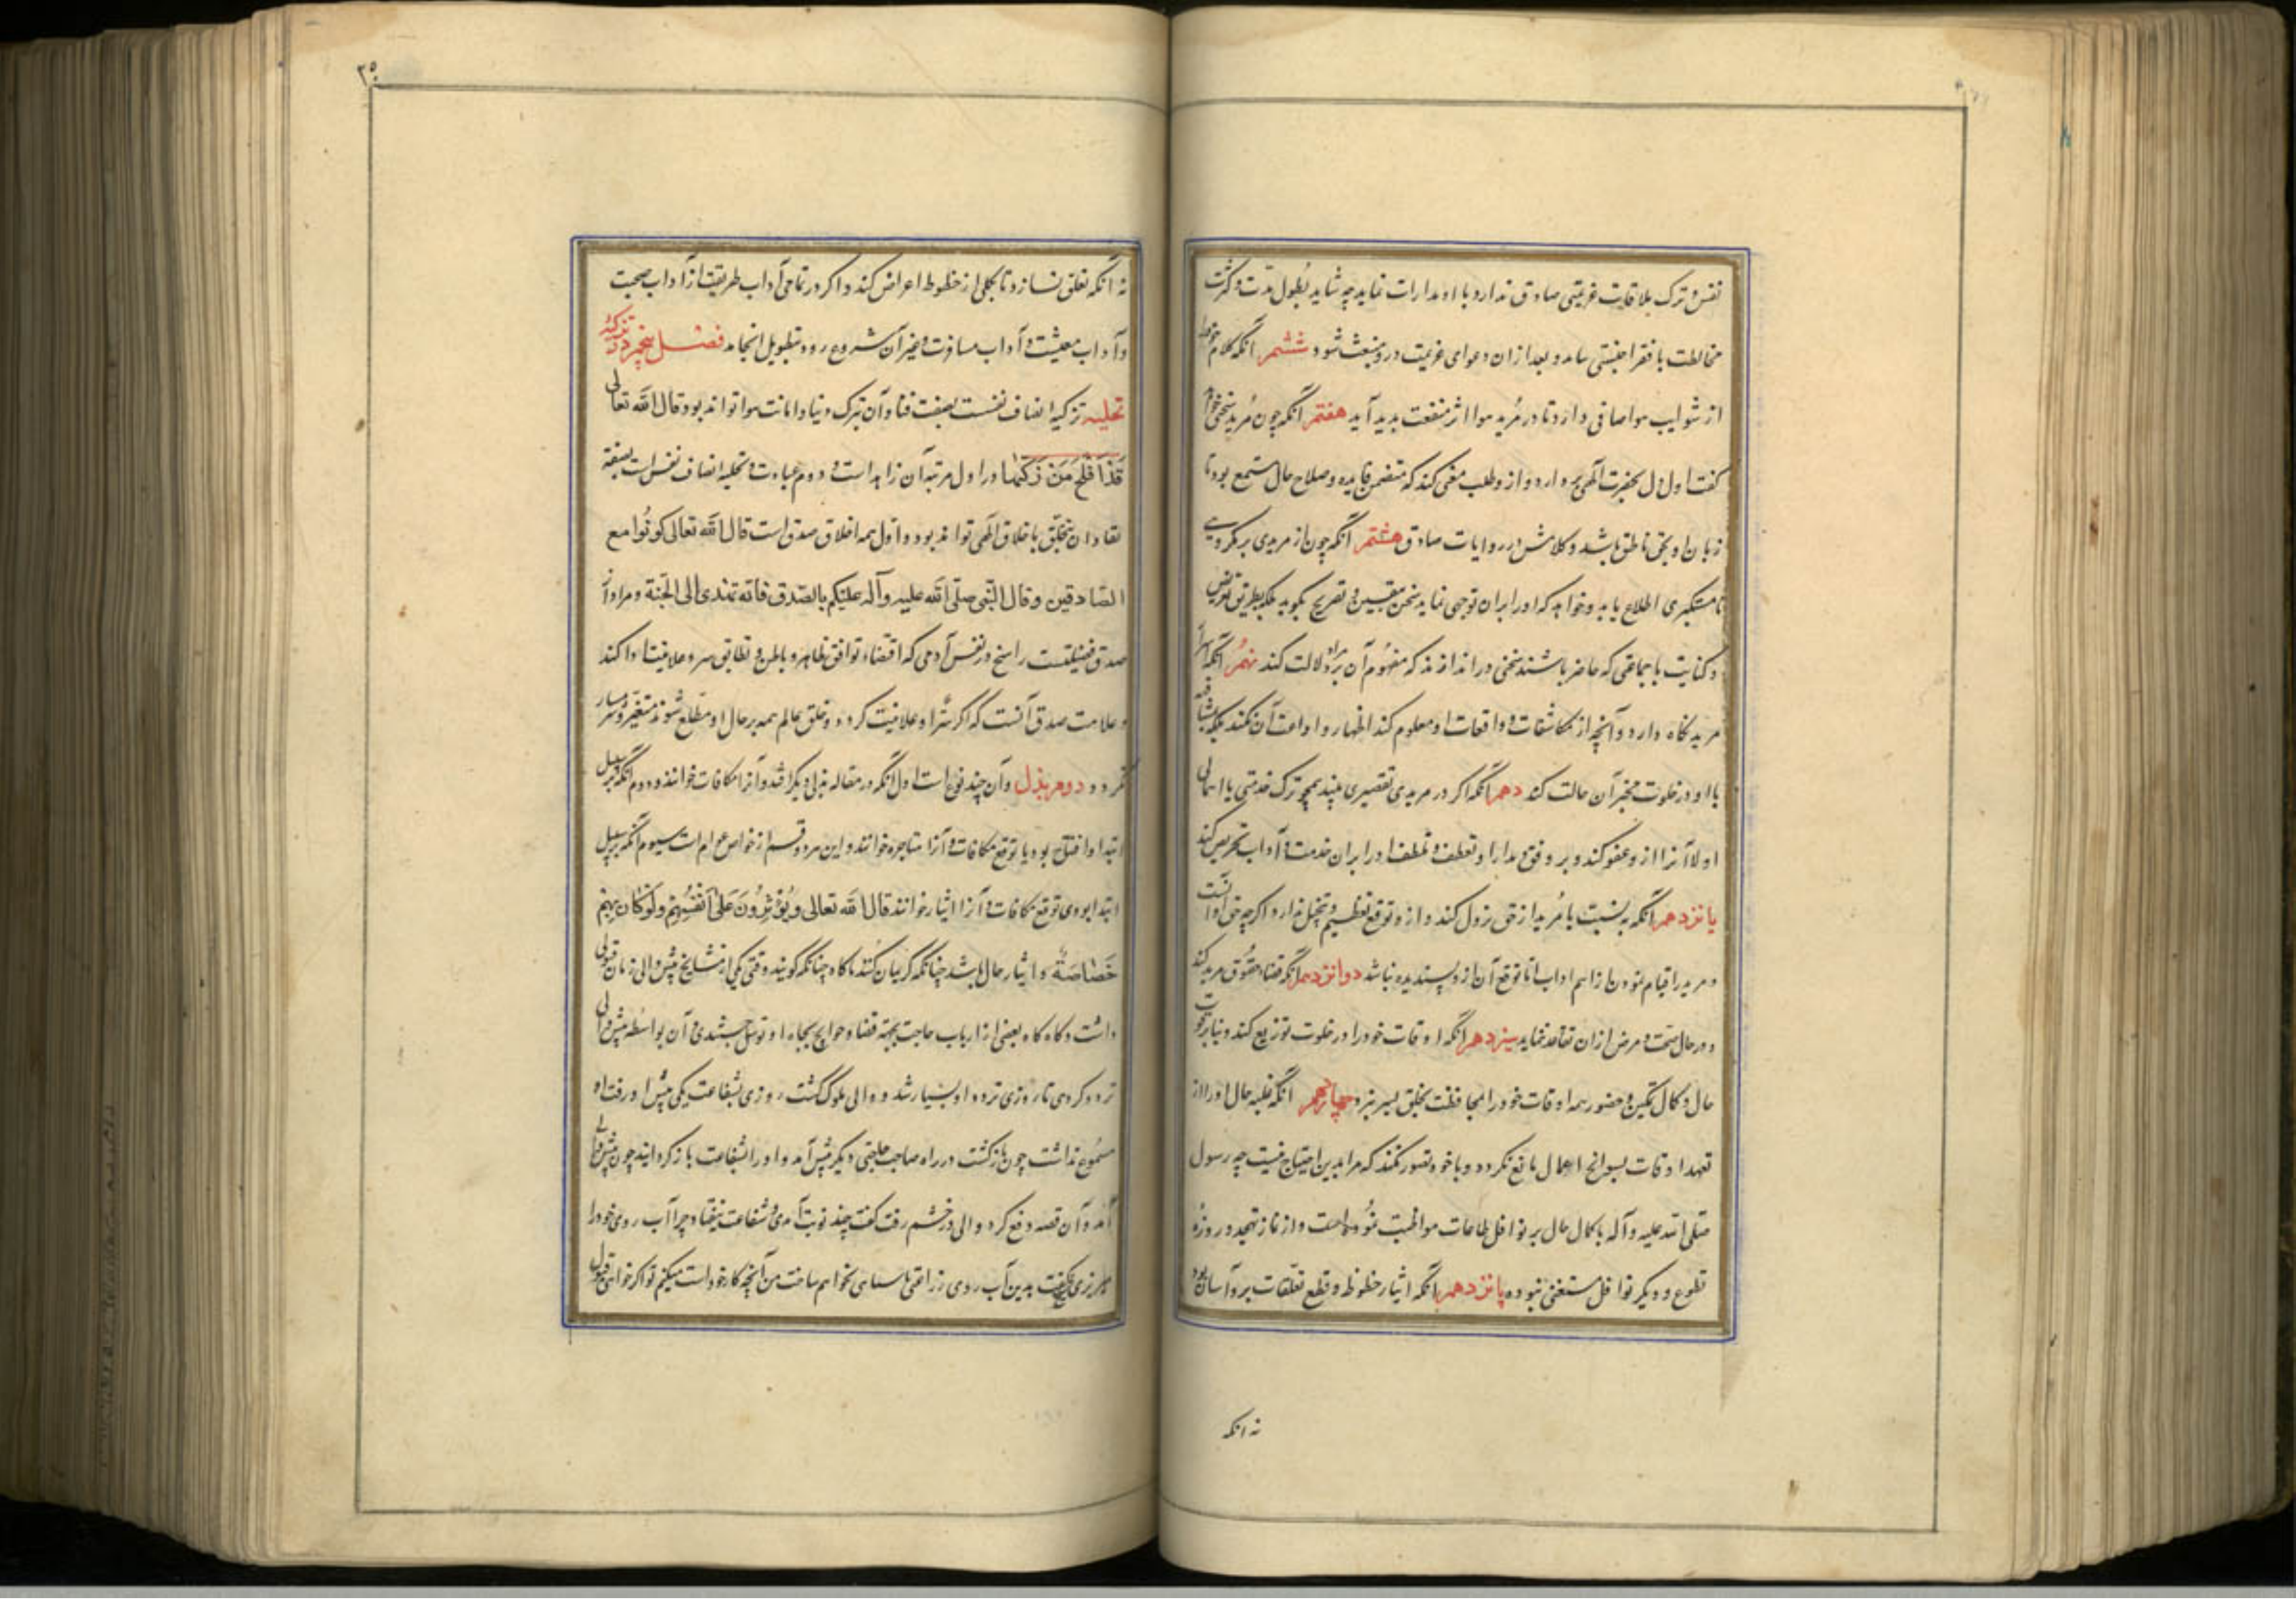 نفس و ترک بلاقیات عزیمتی صادق ندارد با او مدارات نماید چه شاید بطول مدت و کثرت
مخالطت با فقرا جنسیتی بیابد و بعد از آن دعوای عزیمت درو منبعث شود ششم آنکه کلام خود
از شوایب هوا صافی دارد تا در مرید هوا اثر منفعت بدید آید هفتم آنکه چون مرید سخنی خواهد
گفت اول دل بحضرت الهی بردارد و ازو طلب معنی کند که متضمن فایده و صلاح حال مستمع بود تا
زبان او بحق ناطق باشد و کلامش در روایات صادق هشتم آنکه چون از مریدی بر مکروهی
نامستکبری اطلاع یابد و خواهد که او را بر آن توجهی نماید سخن بتعیین و تصریح نگوید بلکه بطریق تعریض
و کنایت با جماعتی که حاضر باشند سخنی در اندازد که مفهوم آن بر مراد دلالت کند نهم آنکه اسرار
مرید نگاه دارد و آنچه از مکاشفات و واقعات او معلوم کند اظهار و اذاعت آن نکند بلکه بمشافهه
با او در خلوت مخبر آن حالت کند دهم آنکه اگر در مریدی تقصیری بیند همچو ترک خدمتی یا اهمالی
اولا آنرا ازو عفو کند و بر وفق مدارا و تعطف و تلطف او را بر آن خدمت و آداب تحریص کند
یازدهم آنکه به نسبت با مرید از حق نزول کند و ازو توقع تعظیم و تبجیل ندارد اگر چه حق او آنست
و مرید را قیام نمودن از اهم اداب اما توقع آن ازو پسندیده نباشد دوازدهم آنکه قضاء حقوق مرید کند
و در حال صحت و مرض از آن تقاعد ننماید سیزدهم آنکه اوقات خود را در خلوت توزیع کند و بنابر قوت
حال و کمال تمکین و حضور همه اوقات خود را بمحافظت بخلق بسر نبرد چهاردهم آنکه غلبه حال او را از
تعهد اوقات بسوانح اعمال مانع نگردد و با خود تصور نکند که مرا بدین احتیاج نیست چه رسول
صلی الله علیه و آله با کمال حال بر نوافل طاعات مواظبت نموده است و از نماز تهجد و روزه
تطوع و دیگر نوافل مستغنی نبوده پانزدهم آنکه ایثار حظوظ و قطع تعلقات برو آسان بود
نه آنکه
۳۵۰
نه آنکه تعلق نسازد تا بکلی از حظوظ اعراض کند و اگر در تمامی آداب طریقت از آداب صحبت
و آداب معیشت و آداب مسافرت و غیر آن شروع رود بتطویل انجامد فصل پنجم در تزکیه
تحلیه تزکیه اتصاف نفس است بصفت فنا و آن بترک دنیا و امانت هوا تواند بود قال الله تعالی
قد افلح من زکیها و در اول مرتبه آن زاهد است و دوم عبادت و تحلیه اتصاف نفس است بصفة
بقا و آن بتخلق باخلاق الهی تواند بود و اول همه اخلاق صدق است قال الله تعالی کونوا مع
الصادقین و قال النبی صلی الله علیه و آله علیکم بالصدق فانه تهدی الی الجنة و مراد از
صدق فضیلتیست راسخ در نفس آدمی که اقتضاء توافق ظاهر و باطن و تطابق سر و علانیت او کند
و علامت صدق آنست که اگر سر او علانیت گردد و خلق عالم همه بر حال او مطلع شوند متغیر و شرمسار
نگردد دوم بذل و آن چند نوع است اول آنکه در مقاله بذلی دیگر افتد و آنرا مکافات خوانند و دوم آنکه بر سبیل
ابتدا و افتتاح بود با توقع مکافات و آنرا متاجره خوانند و این هر دو قسم از خواص عوام است سیوم آنکه بر سبیل
ابتدا بود بی توقع مکافات و آنرا ایثار خوانند قال الله تعالی و یؤثرون علی انفسهم و لو کان بهم
خصاصة و ایثار حال باشد چنانکه گریبان کند ناگاه چنانکه گویند وقتی یکی از مشایخ پیش والی زمان قبولی
داشت و گاه گاه بعضی از ارباب حاجت بجهة قضاء حوایج بجاه او توسل جستندی و آن بواسطه پیش والی
تردد کردی تا روزی تردد او بسیار شد و والی ملول گشت روزی بشفاعت یکی پیش او رفت او
مسموع نداشت چون بازگشت در راه صاحب حاجتی دیگر پیش آمد و او را بشفاعت بازگردانید چون پیش والی
آمد و آن قصه رفع کرد والی در خشم رفت گفت چند نوبت آمدی و شفاعت نیفتاد چرا آب روی خود را
میریزی شیخ گفت بدین آب روی زراعتی آسیابی نخواهم ساخت من آنچه کار خود است میکنم تو اگر خواهی قبول